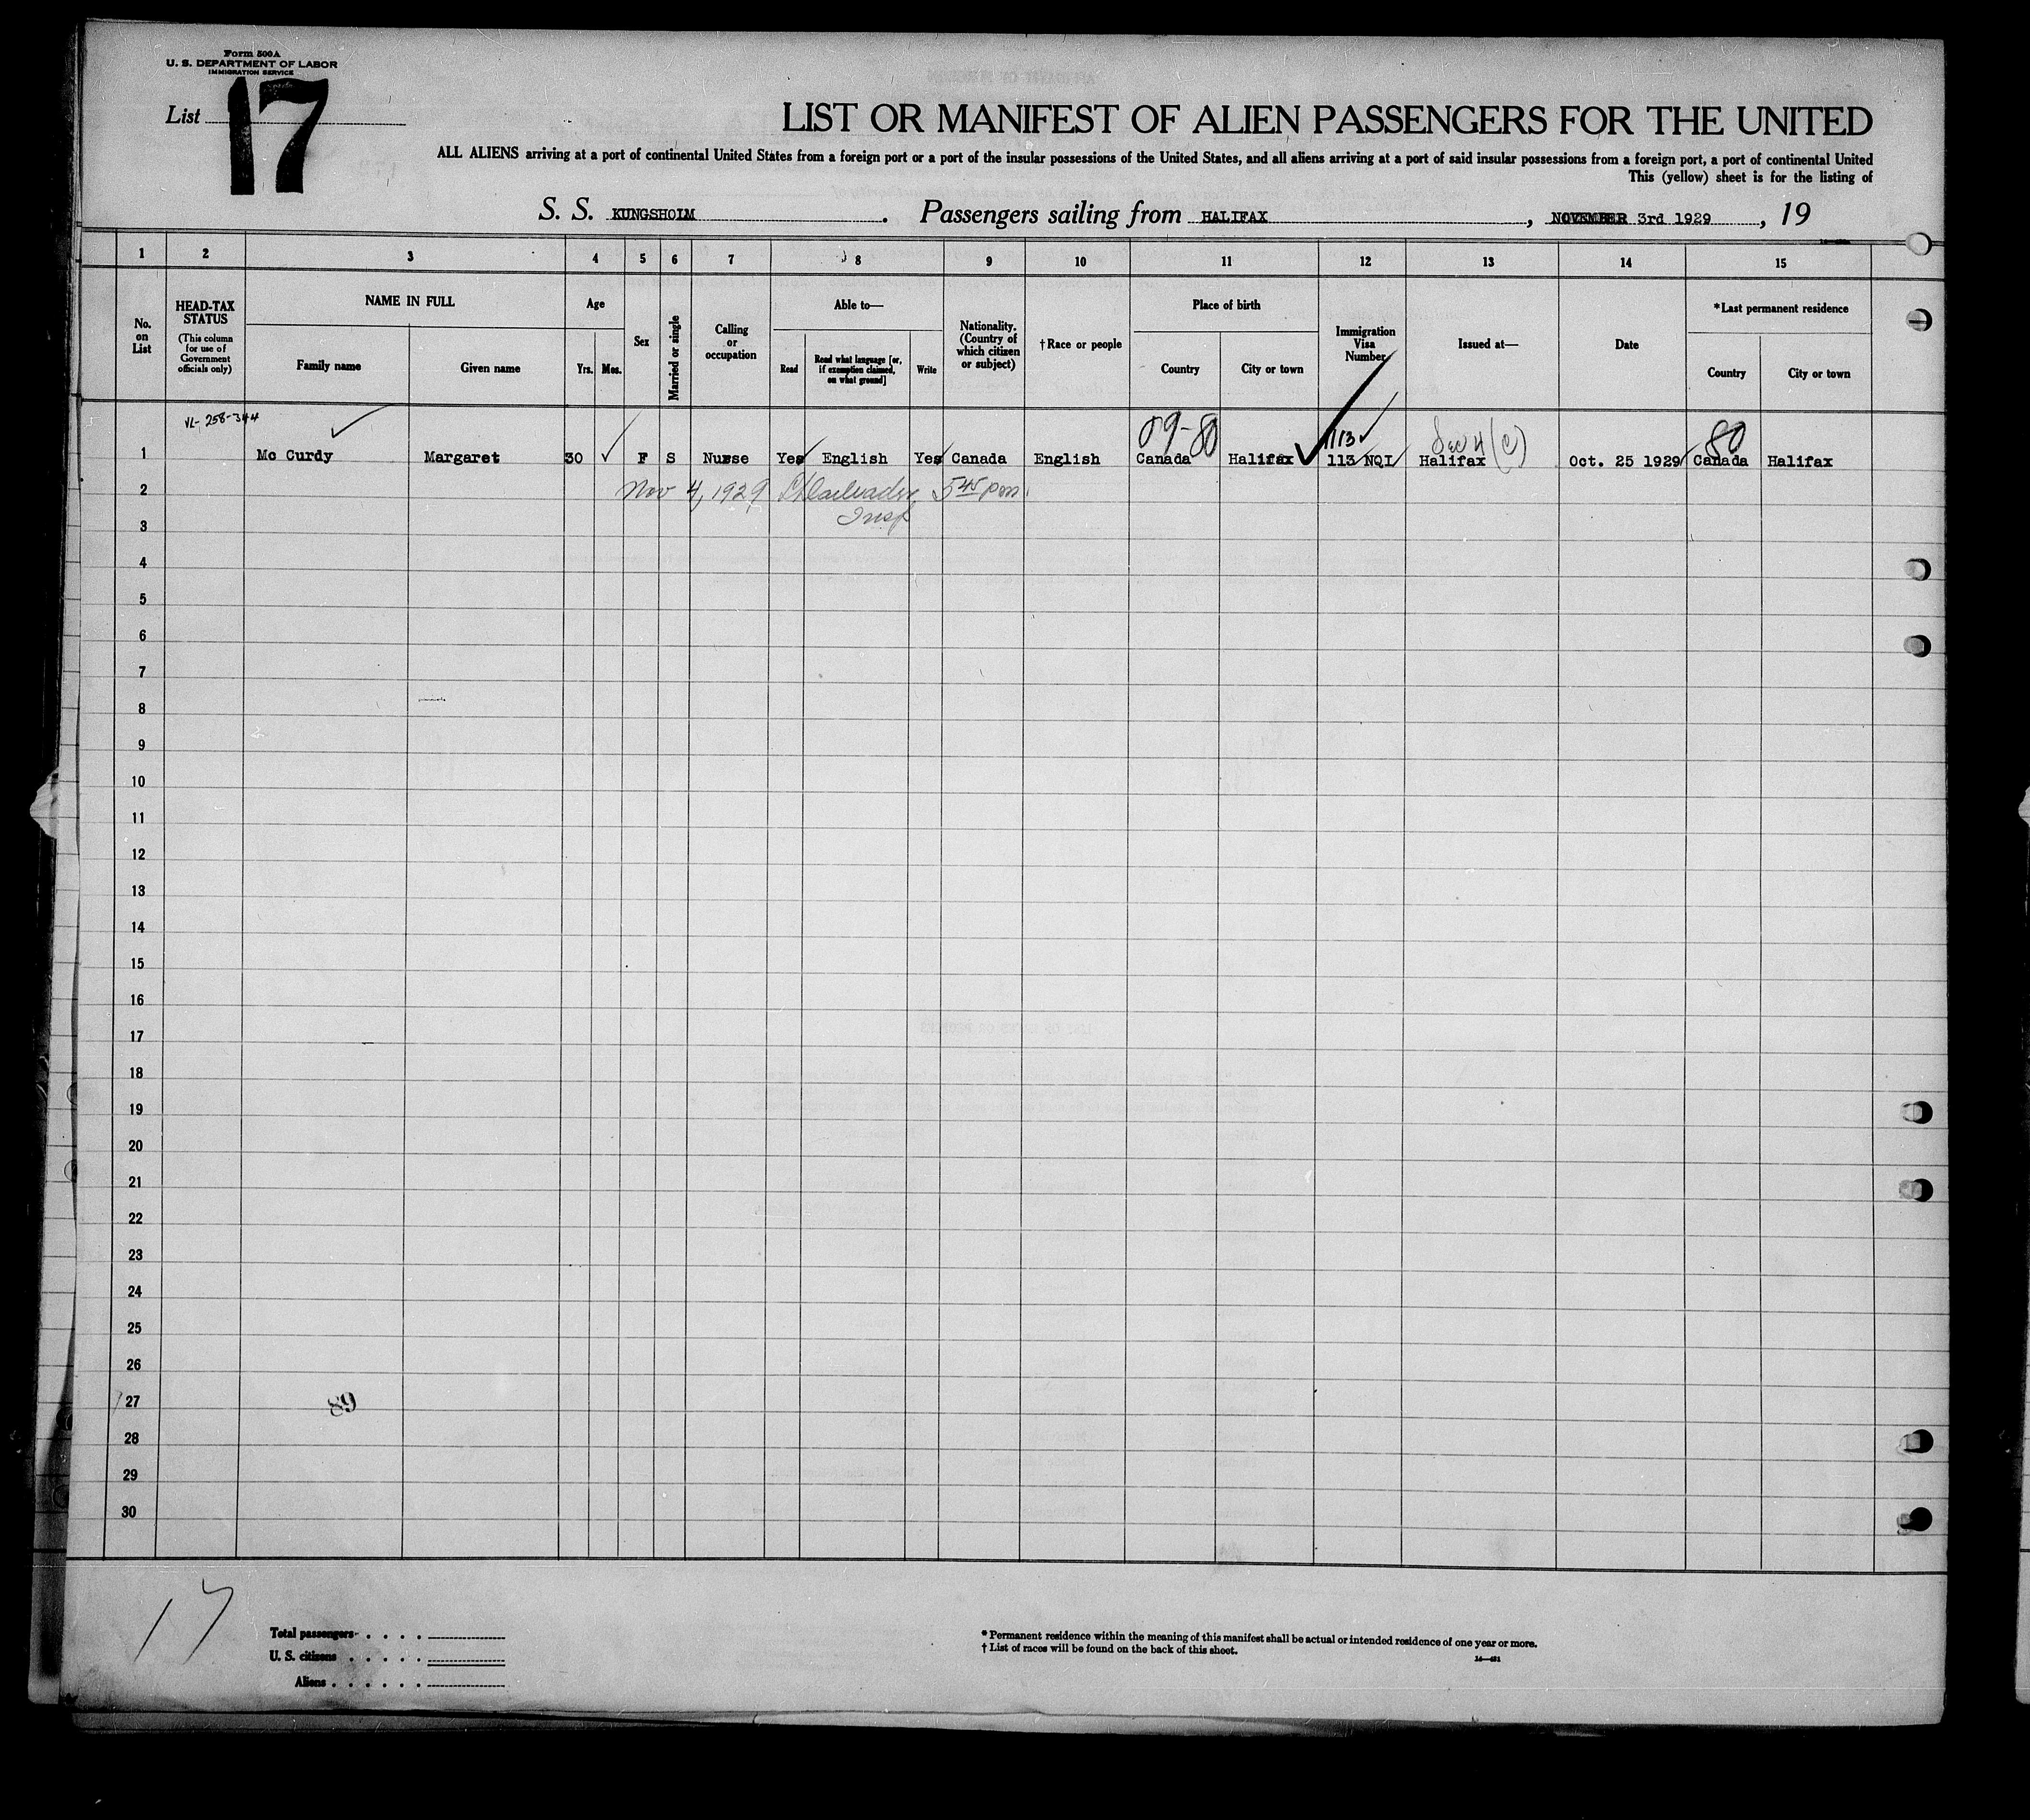 Form 500A
U. S. DEPARTMENT OF LABOR
IMMIGRATION SERVICE
List 17
LIST OR MANIFEST OF ALIEN PASSENGERS FOR THE UNITED
ALL ALIENS arriving at a port of continental United States from a foreign port or a port of the insular possessions of the United States, and all aliens arriving at a port of said insular possessions from a foreign port, a port of continental United
This (yellow) sheet is for the listing of
S. S. KUNGSHOLM. Passengers sailing from HALIFAX, NOVEMBER 3rd 1929, 19
1 2 3 4 5 6 7 8 9 10 11 12 13 14 15
No. on List
HEAD-TAX STATUS
(This column for use of Government officials only)
NAME IN FULL
Family name
Given name
Age
Yrs. Mos.
Sex
Married or single
Calling or occupation
Able to—
Read
Read what language [or, if exemption claimed, on what ground]
Write
Nationality. (Country of which citizen or subject)
†Race or people
Place of birth
Country
City or town
Immigration Visa Number
Issued at—
Date
*Last permanent residence
Country
City or town
VL-258-344
09-80 1113 Sec 4 (c) 80
1 Mc Curdy Margaret 30 F S Nurse Yes English Yes Canada English Canada Halifax 113 NQI Halifax Oct. 25 1929 Canada Halifax
2 Nov 4, 1929 5 45 pm.
3 Insp
4
5
6
7
8
9
10
11
12
13
14
15
16
17
18
19
20
21
22
23
24
25
26
27 89
28
29
30
17
Total passengers . . . .
U. S. citizens . . . . .
Aliens . . . . . .
* Permanent residence within the meaning of this manifest shall be actual or intended residence of one year or more.
† List of races will be found on the back of this sheet.
14—481